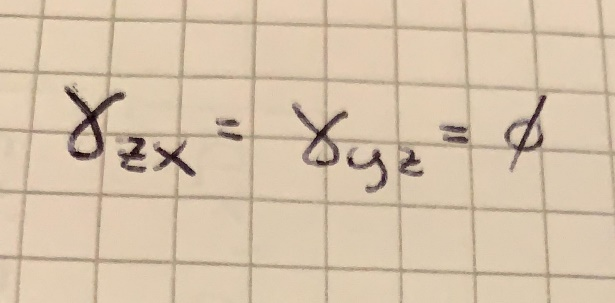 γzx = γyz = ϕ